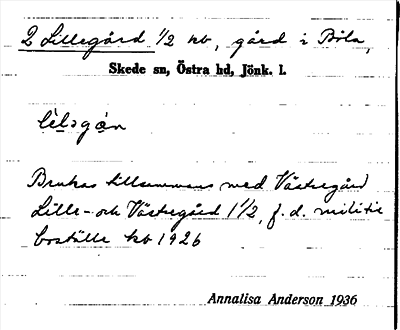 2 Lillegård 1/2 hb, gård i Böla,
Skede sn, Östra hd, Jönk. l.
lẹ́lɔgɑ́n
Brukas tillsammans med Västregård
Lille- och Västregård 1 1/2, f.d. militie
boställe kb 1926
Annalisa Anderson 1936